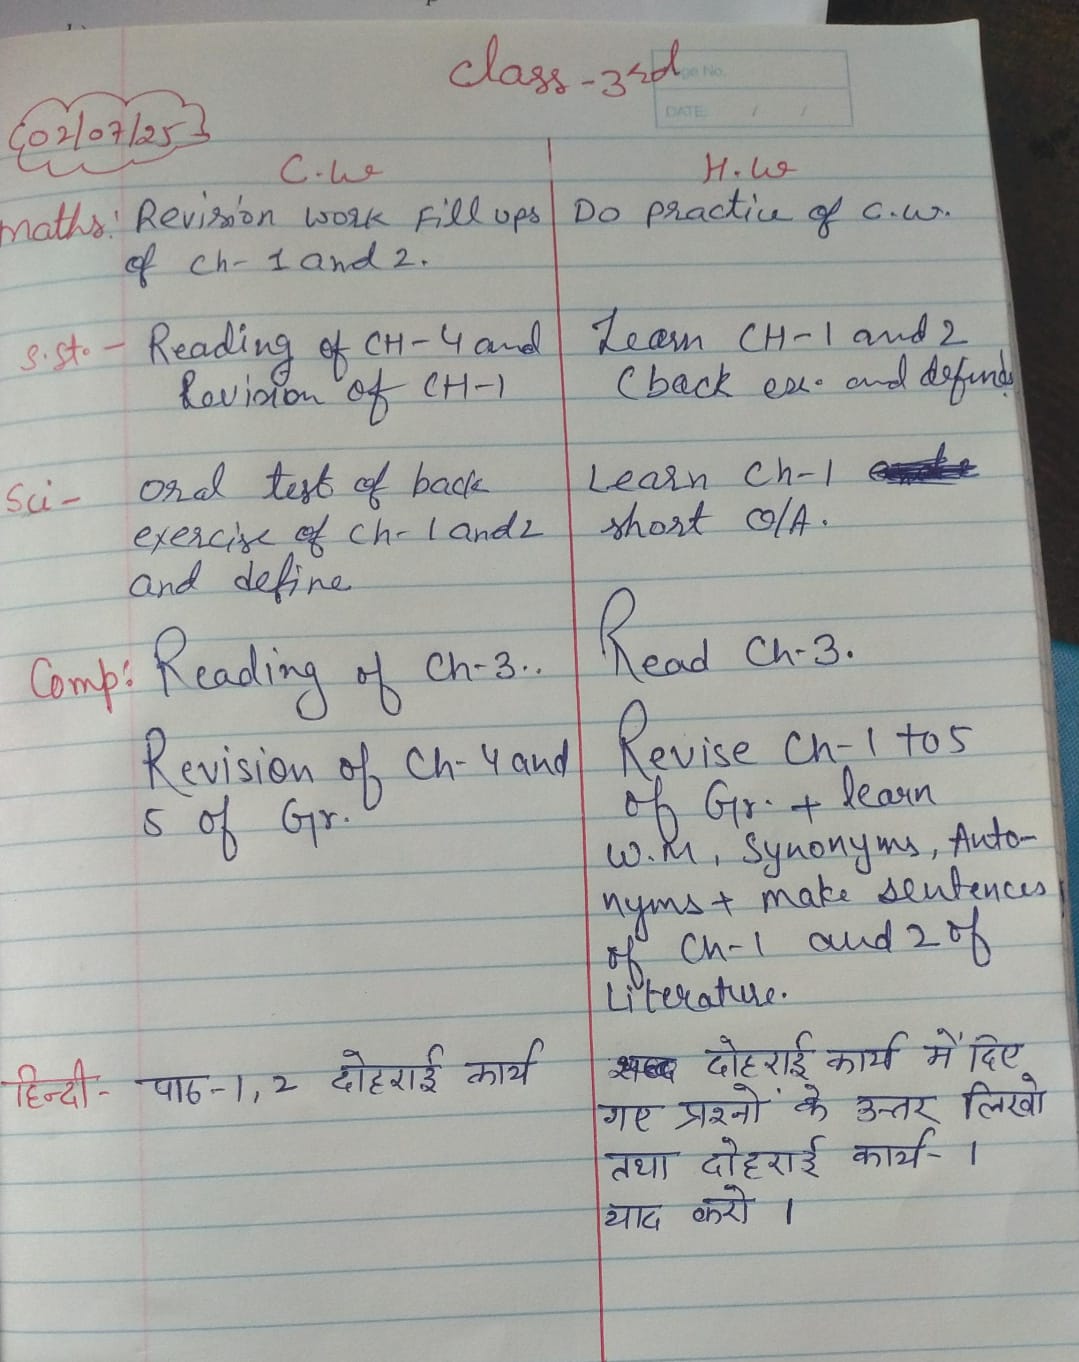 Class-3rd
Page No.
DATE: / /
02/07/25
C.W
H.W
Maths: Revision work Fill ups
of Ch-1 and 2.
Do practice of C.W.
S.St. - Reading of CH-4 and
Revision of CH-1
Learn CH-1 and 2
(back exe. and define)
Sci- Oral test of back
exercise of Ch-1 and 2
and define
Learn Ch-1
short Q/A.
Comp: Reading of Ch-3..
Read Ch-3.
Revision of Ch-4 and
5 of Gr.
Revise Ch-1 to 5
of Gr. + learn
W.M, Synonyms, Anto-
nyms + make sentences
of Ch-1 and 2 of
Literature.
हिन्दी- पाठ-1,2 दोहराई कार्य
दोहराई कार्य में दिए
गए प्रश्नों के उत्तर लिखो
तथा दोहराई कार्य- 1
याद करो ।